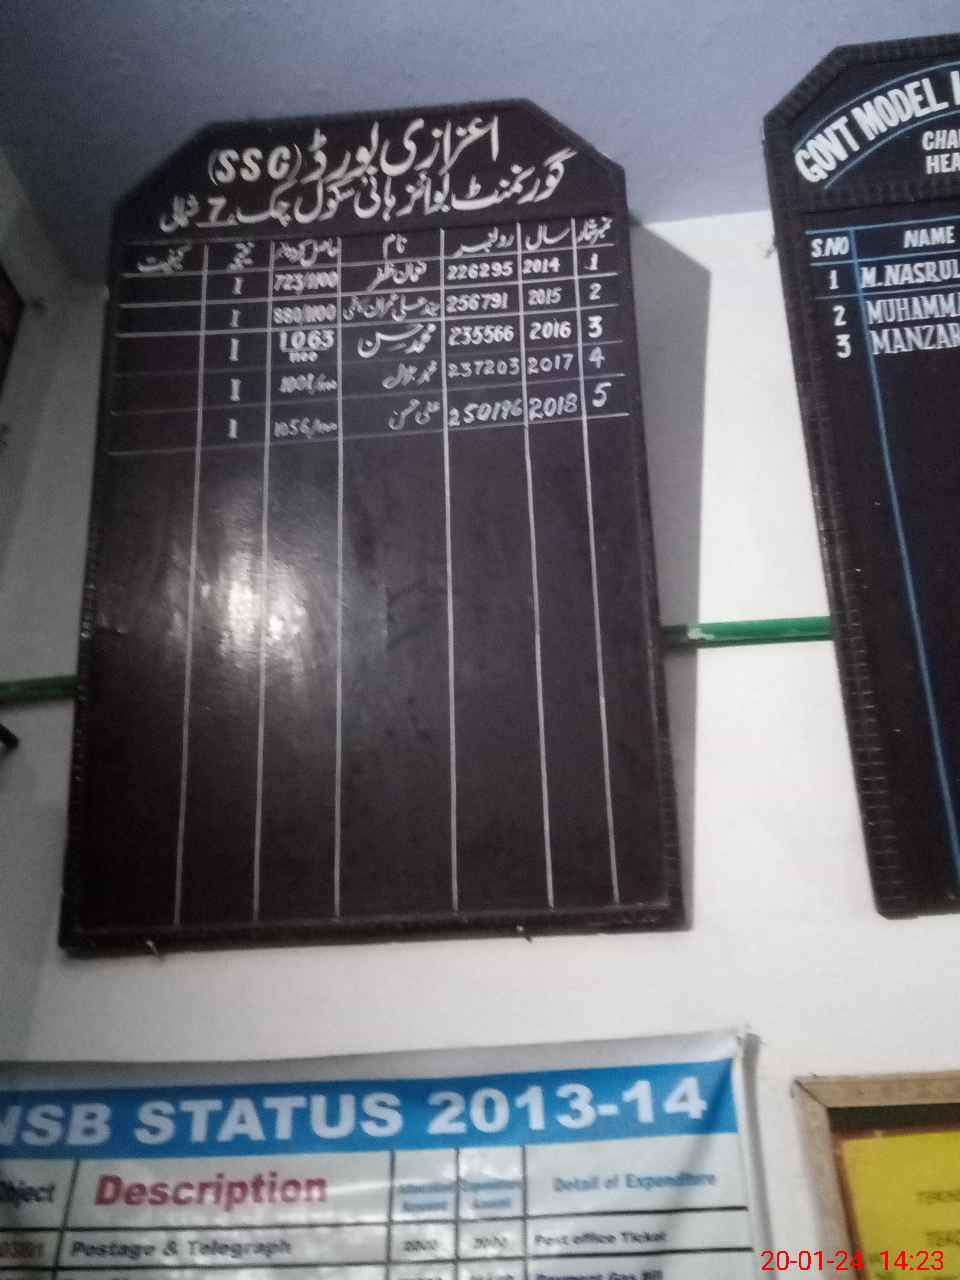 اعزازی بورڈ (SSC)
گورنمنٹ بوائز ہائی سکول چک 7 شمالی
نمبر شمار سال رولنمبر نام حاصل کردہ نمبر نتیجہ کیفیت
1 2014 226295 نعمان ظفر 723/1100 1
2 2015 256791 سید علی عمران 880/1100 1
3 2016 235566 محمد حسن 1063/1100 1
4 2017 237203 محمد بلال 1001/1100 1
5 2018 250196 علی حسن 1056/1100 1
GOVT MODEL
CHA
HEA
S.NO NAME
1 M.NASRUL
2 MUHAMMA
3 MANZAR
NSB STATUS 2013-14
bject Description Detail of Expenditure
Postage & Telegraph Post office Ticket
20-01-24 14:23